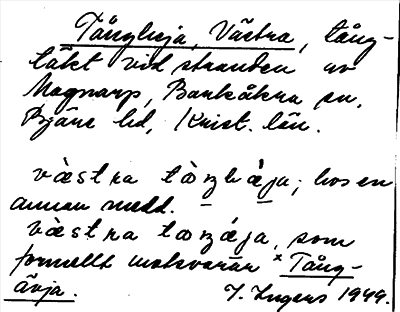 Tångheja, Västra, tång-
täkt vid stranden av
Magnarp, Barkåkra sn,
Bjäre hd, Krist. län.
västra tɷŋhɛ́ja; hos en
annan medd.
västra tɷŋɛ́ja, som
formellt motsvarar × Tång-
ävja.
I. Ingers 1949.